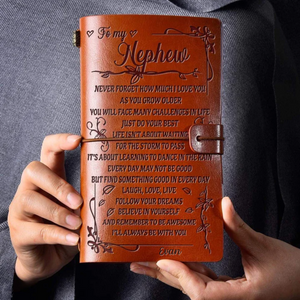 To my
Nephew
NEVER FORGET HOW MUCH I LOVE YOU
AS YOU GROW OLDER
YOU WILL FACE MANY CHALLENGES IN LIFE
JUST DO YOUR BEST
LIFE ISN'T ABOUT WAITING
FOR THE STORM TO PASS
IT'S ABOUT LEARNING TO DANCE IN THE RAIN
EVERY DAY MAY NOT BE GOOD
BUT FIND SOMETHING GOOD IN EVERY DAY
LAUGH, LOVE, LIVE
FOLLOW YOUR DREAMS
BELIEVE IN YOURSELF
AND REMEMBER TO BE AWESOME
I'LL ALWAYS BE WITH YOU!